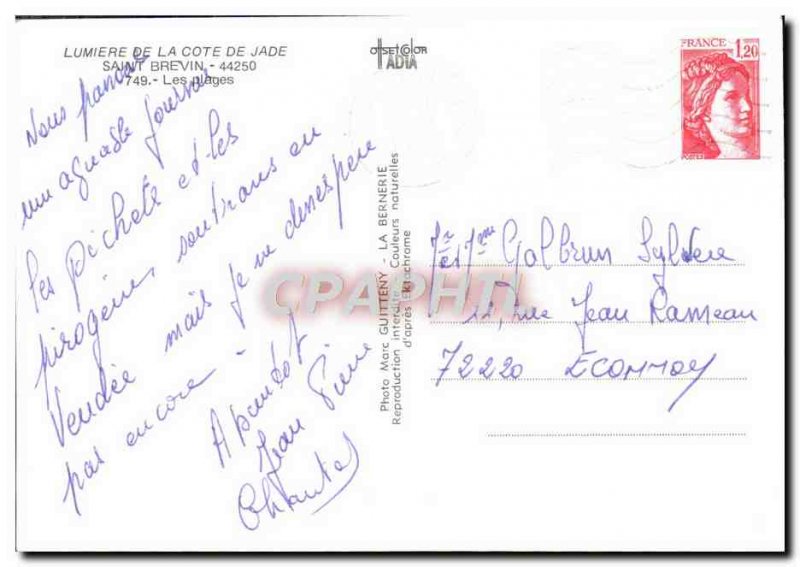 LUMIERE DE LA COTE DE JADE
SAINT BREVIN - 44250
749.- Les plages
OFFSET COLOR
ADIA
FRANCE 1,20
POSTES
Nous
une agreable journée
les et les
en
Vendée mais je ne desespere
pas encore -
A bientot
Jean Pierre
Chantal
Photo Marc GUITTENY - LA BERNERIE
Reproduction interdite - Couleurs naturelles
d'après Ektachrome
CPAPHIL
Mr et Mme Galbrun Sylvère
rue Jean Rameau
72220 ECOMMOY